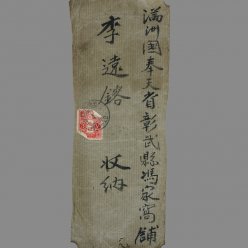 滿洲国奉天省彰武縣馮家窩舖
李遠鎔 収納